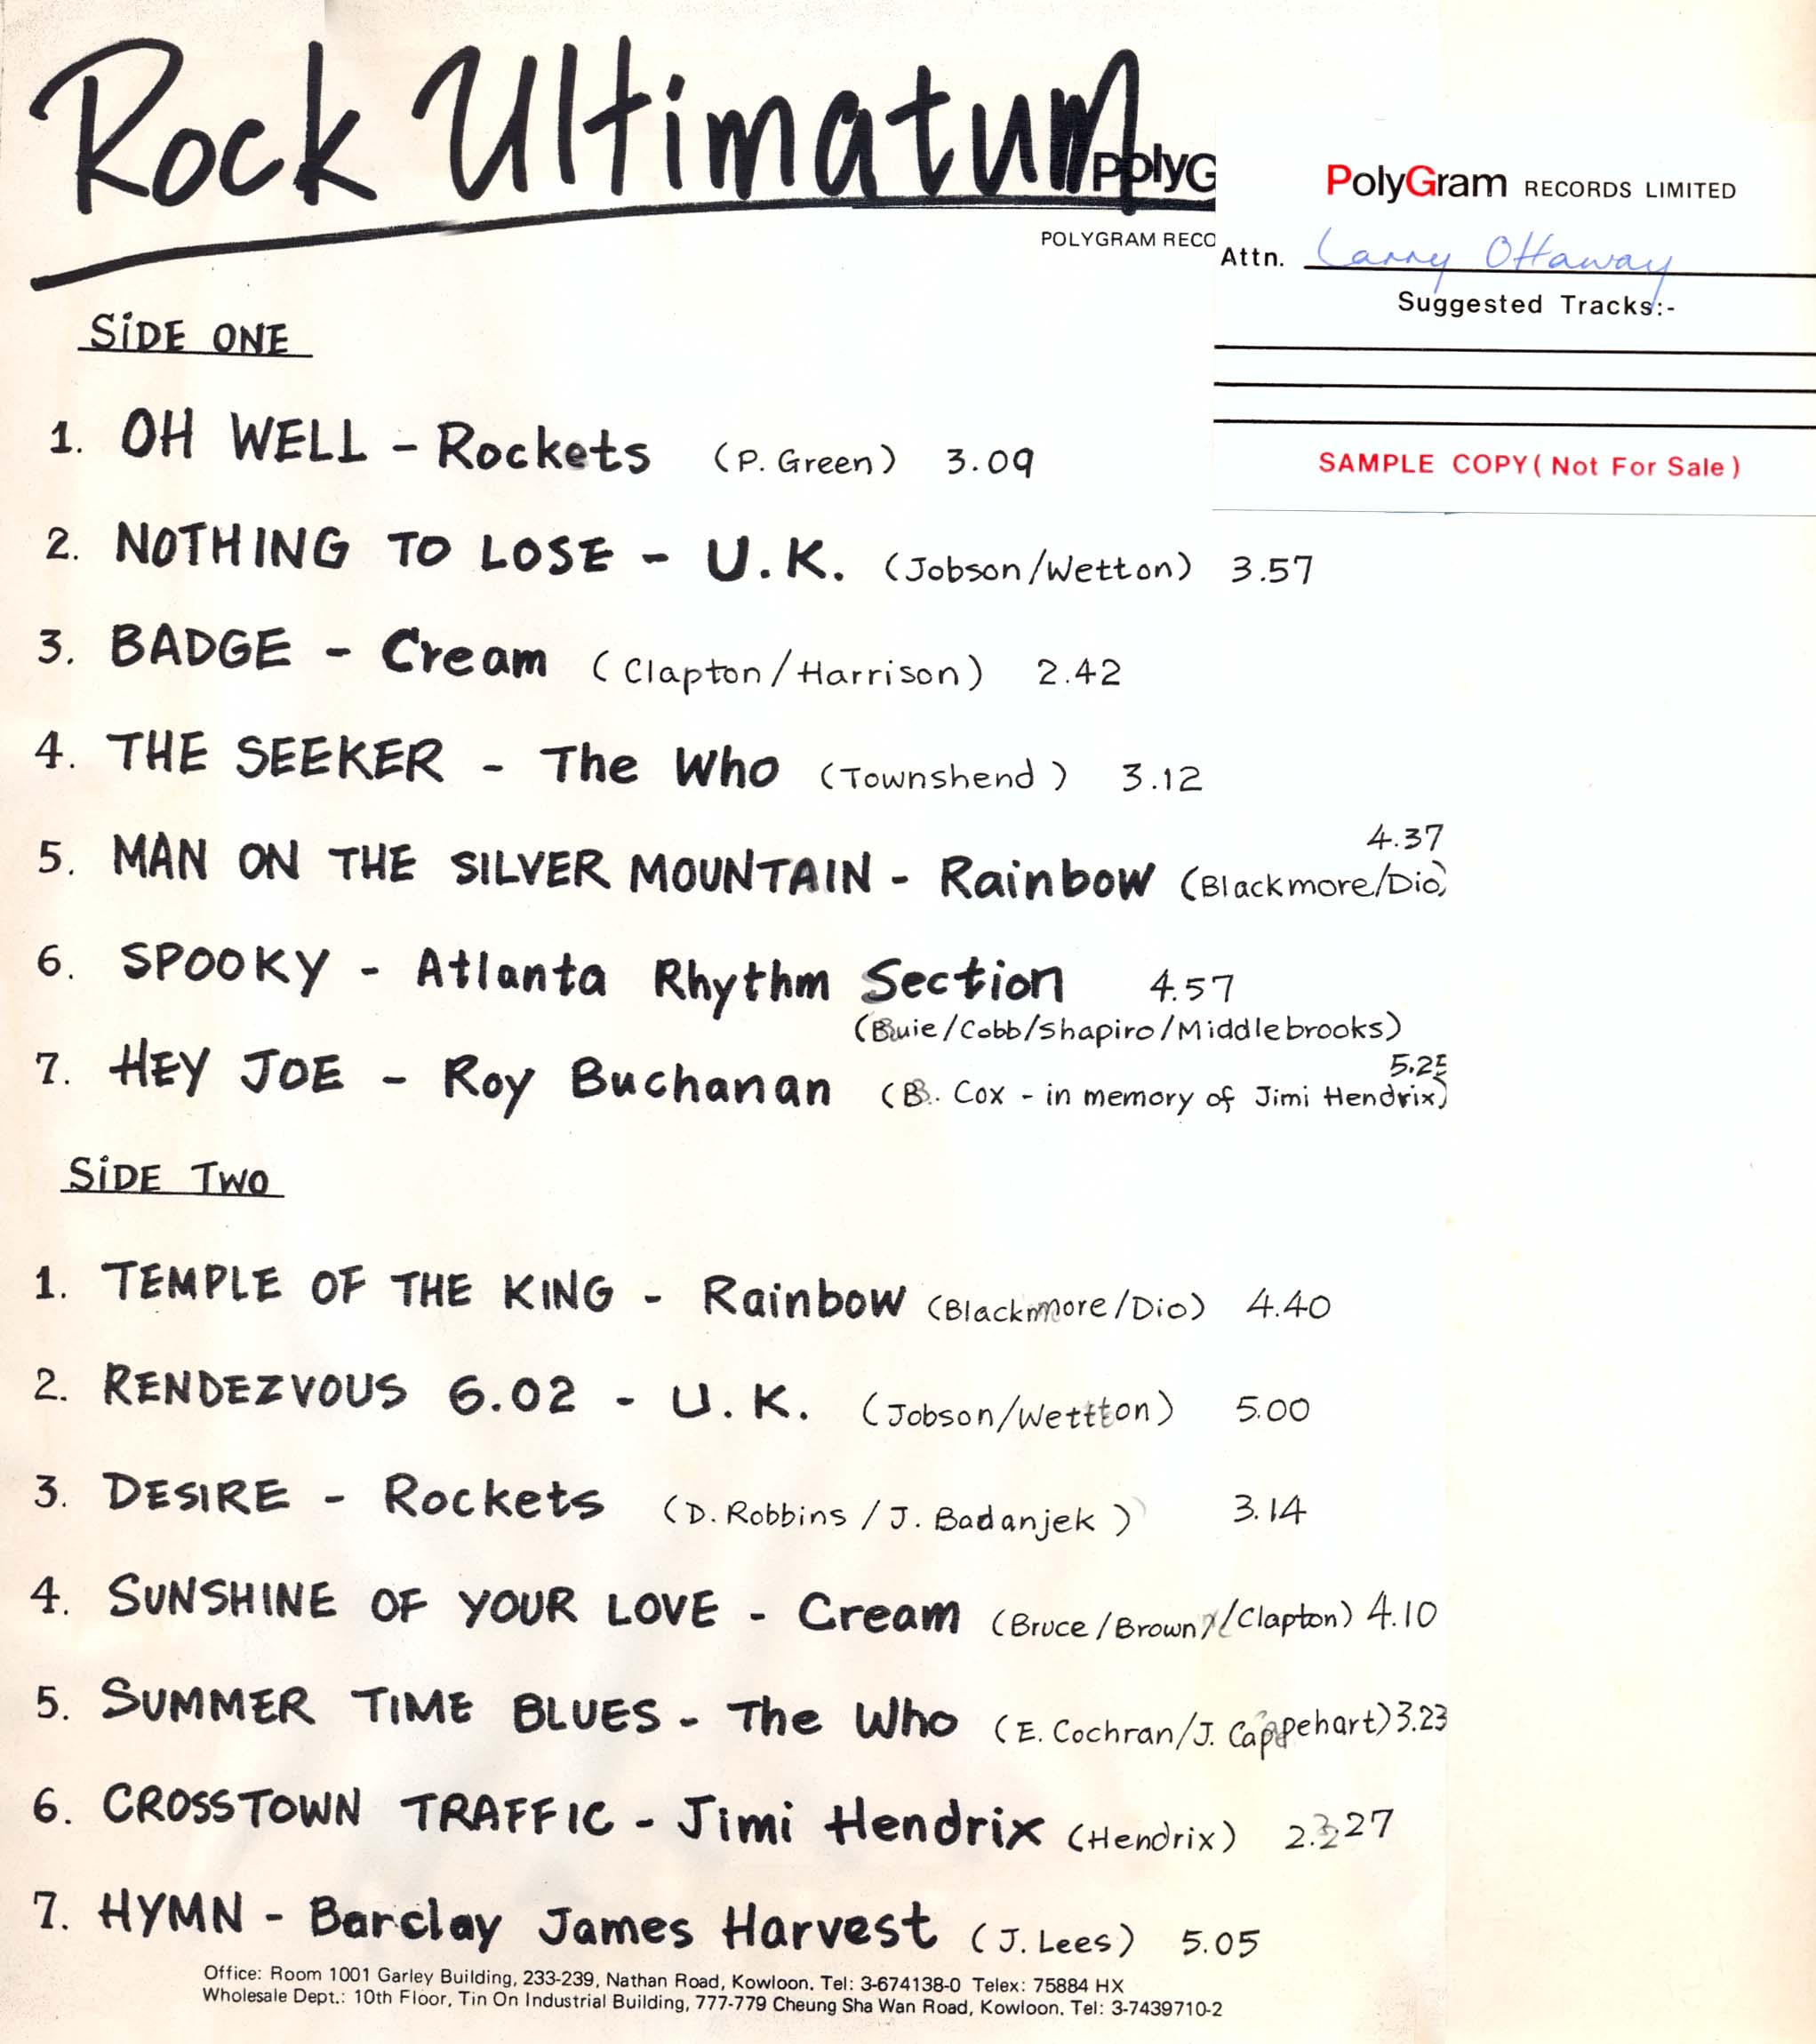 Rock Ultimatum
PolyG
POLYGRAM RECO
PolyGram RECORDS LIMITED
Attn. Larry Ottaway
Suggested Tracks:-
SAMPLE COPY ( Not For Sale )
SiDE ONE
1. OH WELL - Rockets (P. Green) 3.09
2. NOTHING TO LOSE - U.K. (Jobson/Wetton) 3.57
3. BADGE - Cream (Clapton/Harrison) 2.42
4. THE SEEKER - The Who (Townshend) 3.12
4.37
5. MAN ON THE SILVER MOUNTAIN - Rainbow (Blackmore/Dio)
6. SPOOKY - Atlanta Rhythm Section 4.57
(Buie/Cobb/Shapiro/Middlebrooks)
5.25
7. HEY JOE - Roy Buchanan (B. Cox - in memory of Jimi Hendrix)
SiDE TWO
1. TEMPLE OF THE KING - Rainbow (Blackmore/Dio) 4.40
2. RENDEZVOUS 6.02 - U.K. (Jobson/Wettton) 5.00
3. DESIRE - Rockets (D. Robbins / J. Badanjek) 3.14
4. SUNSHINE OF YOUR LOVE - Cream (Bruce/Brown/Clapton) 4.10
5. SUMMER TIME BLUES - The Who (E. Cochran/J. Cappehart) 3.23
6. CROSSTOWN TRAFFIC - Jimi Hendrix (Hendrix) 2.27
7. HYMN - Barclay James Harvest (J. Lees) 5.05
Office: Room 1001 Garley Building, 233-239, Nathan Road, Kowloon. Tel: 3-674138-0 Telex: 75884 HX
Wholesale Dept.: 10th Floor, Tin On Industrial Building, 777-779 Cheung Sha Wan Road, Kowloon. Tel: 3-7439710-2